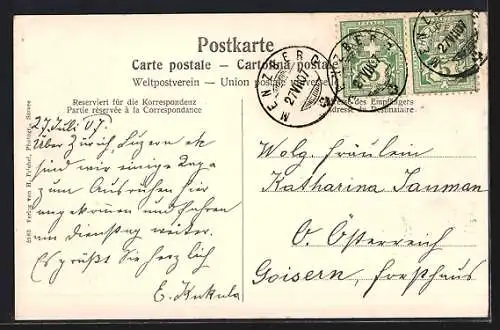 Postkarte
Carte postale — Cartolina postale
Weltpostverein — Union postale universelle
Reserviert für die Korrespondenz
Partie réservée à la Correspondance
Adresse des Empfängers
Adresse du Destinataire
MENZBERG
27 VII 07
MENZBERG
27 VII 07
MENZBERG
27 VII 07
27 Juli 07.
Über Zürich, Luzern etc
sind wir einige Tage
zum Ausruhen hier
angekommen und fahren
am Dienstag weiter.
Es grüßt Sie herzlich
E. Kukula
Wolg. Fräulein
Katharina Janman
O. Österreich
Goisern, Forsthaus
Verlag von H. Friebel, Photogr., Sursee